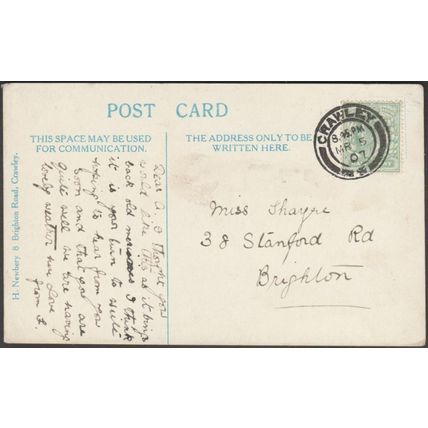 POST CARD
THIS SPACE MAY BE USED
FOR COMMUNICATION.
THE ADDRESS ONLY TO BE
WRITTEN HERE.
H. Newbery 8 Brighton Road, Crawley.
CRAWLEY
8.15 PM
MR 5
07
Dear A. I thought you
would like this as it brings
back old memories I think
it is your turn to write
hoping to hear from you
soon and that you are
quite well we are having
lovely weather here Love
from F.
Miss
38 Stanford Rd
Brighton